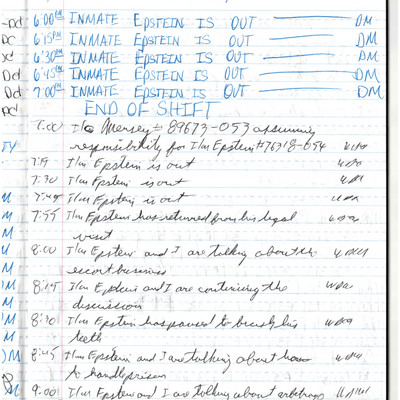 Dd 6:00AM INMATE EPSTEIN IS OUT DM
DC 6:15PM INMATE EPSTEIN IS OUT DM
6:30M INMATE EPSTEIN IS OUT DM
Dd 6:45M INMATE EPSTEIN IS OUT DM
Dd 7:00M INMATE EPSTEIN IS OUT DM
DC END OF SHIFT
7:00 I/C Mersey # 89673-053 assuming
responsibility for I/m Epstein #76318-054
7:15 I/m Epstein is out
7:30 I/m Epstein is out
M 7:45 I/m Epstein is out
M 7:55 I/m Epstein has returned from his legal
M visit
M 8:00 I/m Epstein and I are talking about the
M escort business
M 8:15 I/m Epstein and I are continuing the
M discussion
M 8:30 I/m Epstein has paused to brush his
M teeth
DM 8:45 I/m Epstein and I are talking about how
to handle prison
M 9:00 I/m Epstein and I are talking about arbitrage